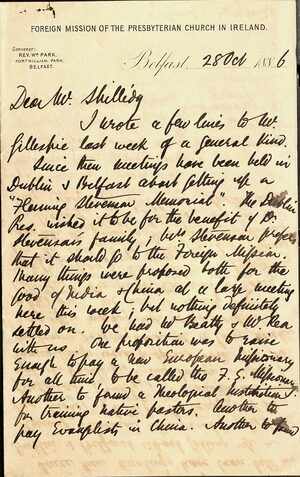 FOREIGN MISSION OF THE PRESBYTERIAN CHURCH IN IRELAND.
CONVENER:
REV. WM PARK,
FORTWILLIAM PARK,
BELFAST.
Belfast, 28 Oct 1886
Dear Mr Shillidy
I wrote a few lines to Mr
Gillespie last week of a general kind.
Since then meetings have been held in
Dublin & Belfast about getting up a
"Fleming Stevenson Memorial". The Dublin
Pres. wished it to be for the benefit of Dr
Stevenson's family; but Mrs Stevenson prefers
that it should go to the Foreign Mission.
Many things were proposed both for the
Good of India & China at a large meeting
here this week; but nothing definitely
settled on. We had Mr Beatty & Mr Rea
with us. One proposition was to raise
enough to pay a new European Missionary
for all time to be called the F. S. Missionary.
Another to found a Theological Institution
for training native pastors. Another to
pay Evangelists in China. Another to found